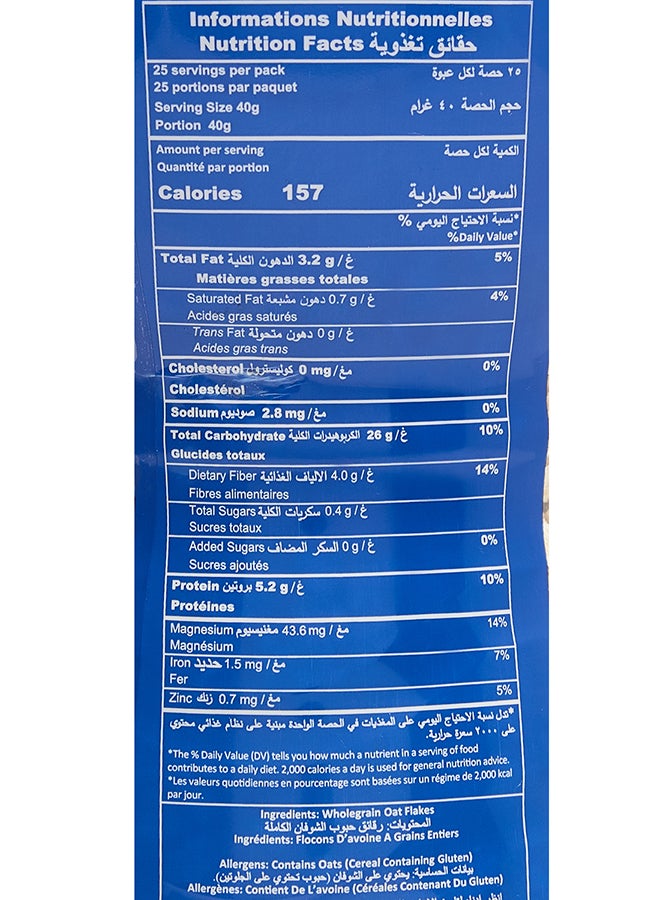 Informations Nutritionnelles
Nutrition Facts حقائق تغذوية
25 servings per pack ٢٥ حصة لكل عبوة
25 portions par paquet
Serving Size 40g حجم الحصة ٤٠ غرام
Portion 40g
Amount per serving الكمية لكل حصة
Quantité par portion
Calories 157 السعرات الحرارية
*نسبة الاحتياج اليومي %
%Daily Value*
Total Fat الدهون الكلية 3.2 g / غ 5%
Matières grasses totales
Saturated Fat دهون مشبعة 0.7 g / غ 4%
Acides gras saturés
Trans Fat دهون متحولة 0 g / غ
Acides gras trans
Cholesterol كوليسترول 0 mg / مغ 0%
Cholestérol
Sodium صوديوم 2.8 mg / مغ 0%
Total Carbohydrate الكربوهيدرات الكلية 26 g / غ 10%
Glucides totaux
Dietary Fiber الالياف الغذائية 4.0 g / غ 14%
Fibres alimentaires
Total Sugars سكريات الكلية 0.4 g / غ
Sucres totaux
Added Sugars السكر المضاف 0 g / غ 0%
Sucres ajoutés
Protein بروتين 5.2 g / غ 10%
Protéines
Magnesium مغنيسيوم 43.6 mg / مغ 14%
Magnésium
Iron حديد 1.5 mg / مغ 7%
Fer
Zinc زنك 0.7 mg / مغ 5%
*تدل نسبة الاحتياج اليومي على المغذيات في الحصة الواحدة مبنية على نظام غذائي محتوي
على ٢٠٠٠ سعرة حرارية.
*The % Daily Value (DV) tells you how much a nutrient in a serving of food
contributes to a daily diet. 2,000 calories a day is used for general nutrition advice.
*Les valeurs quotidiennes en pourcentage sont basées sur un régime de 2,000 kcal
par jour.
Ingredients: Wholegrain Oat Flakes
المحتويات: رقائق حبوب الشوفان الكاملة
Ingrédients: Flocons D'avoine A Grains Entiers
Allergens: Contains Oats (Cereal Containing Gluten)
بيانات الحساسية: يحتوي على الشوفان (حبوب تحتوي على الجلوتين).
Allergènes: Contient De L'avoine (Céréales Contenant Du Gluten)